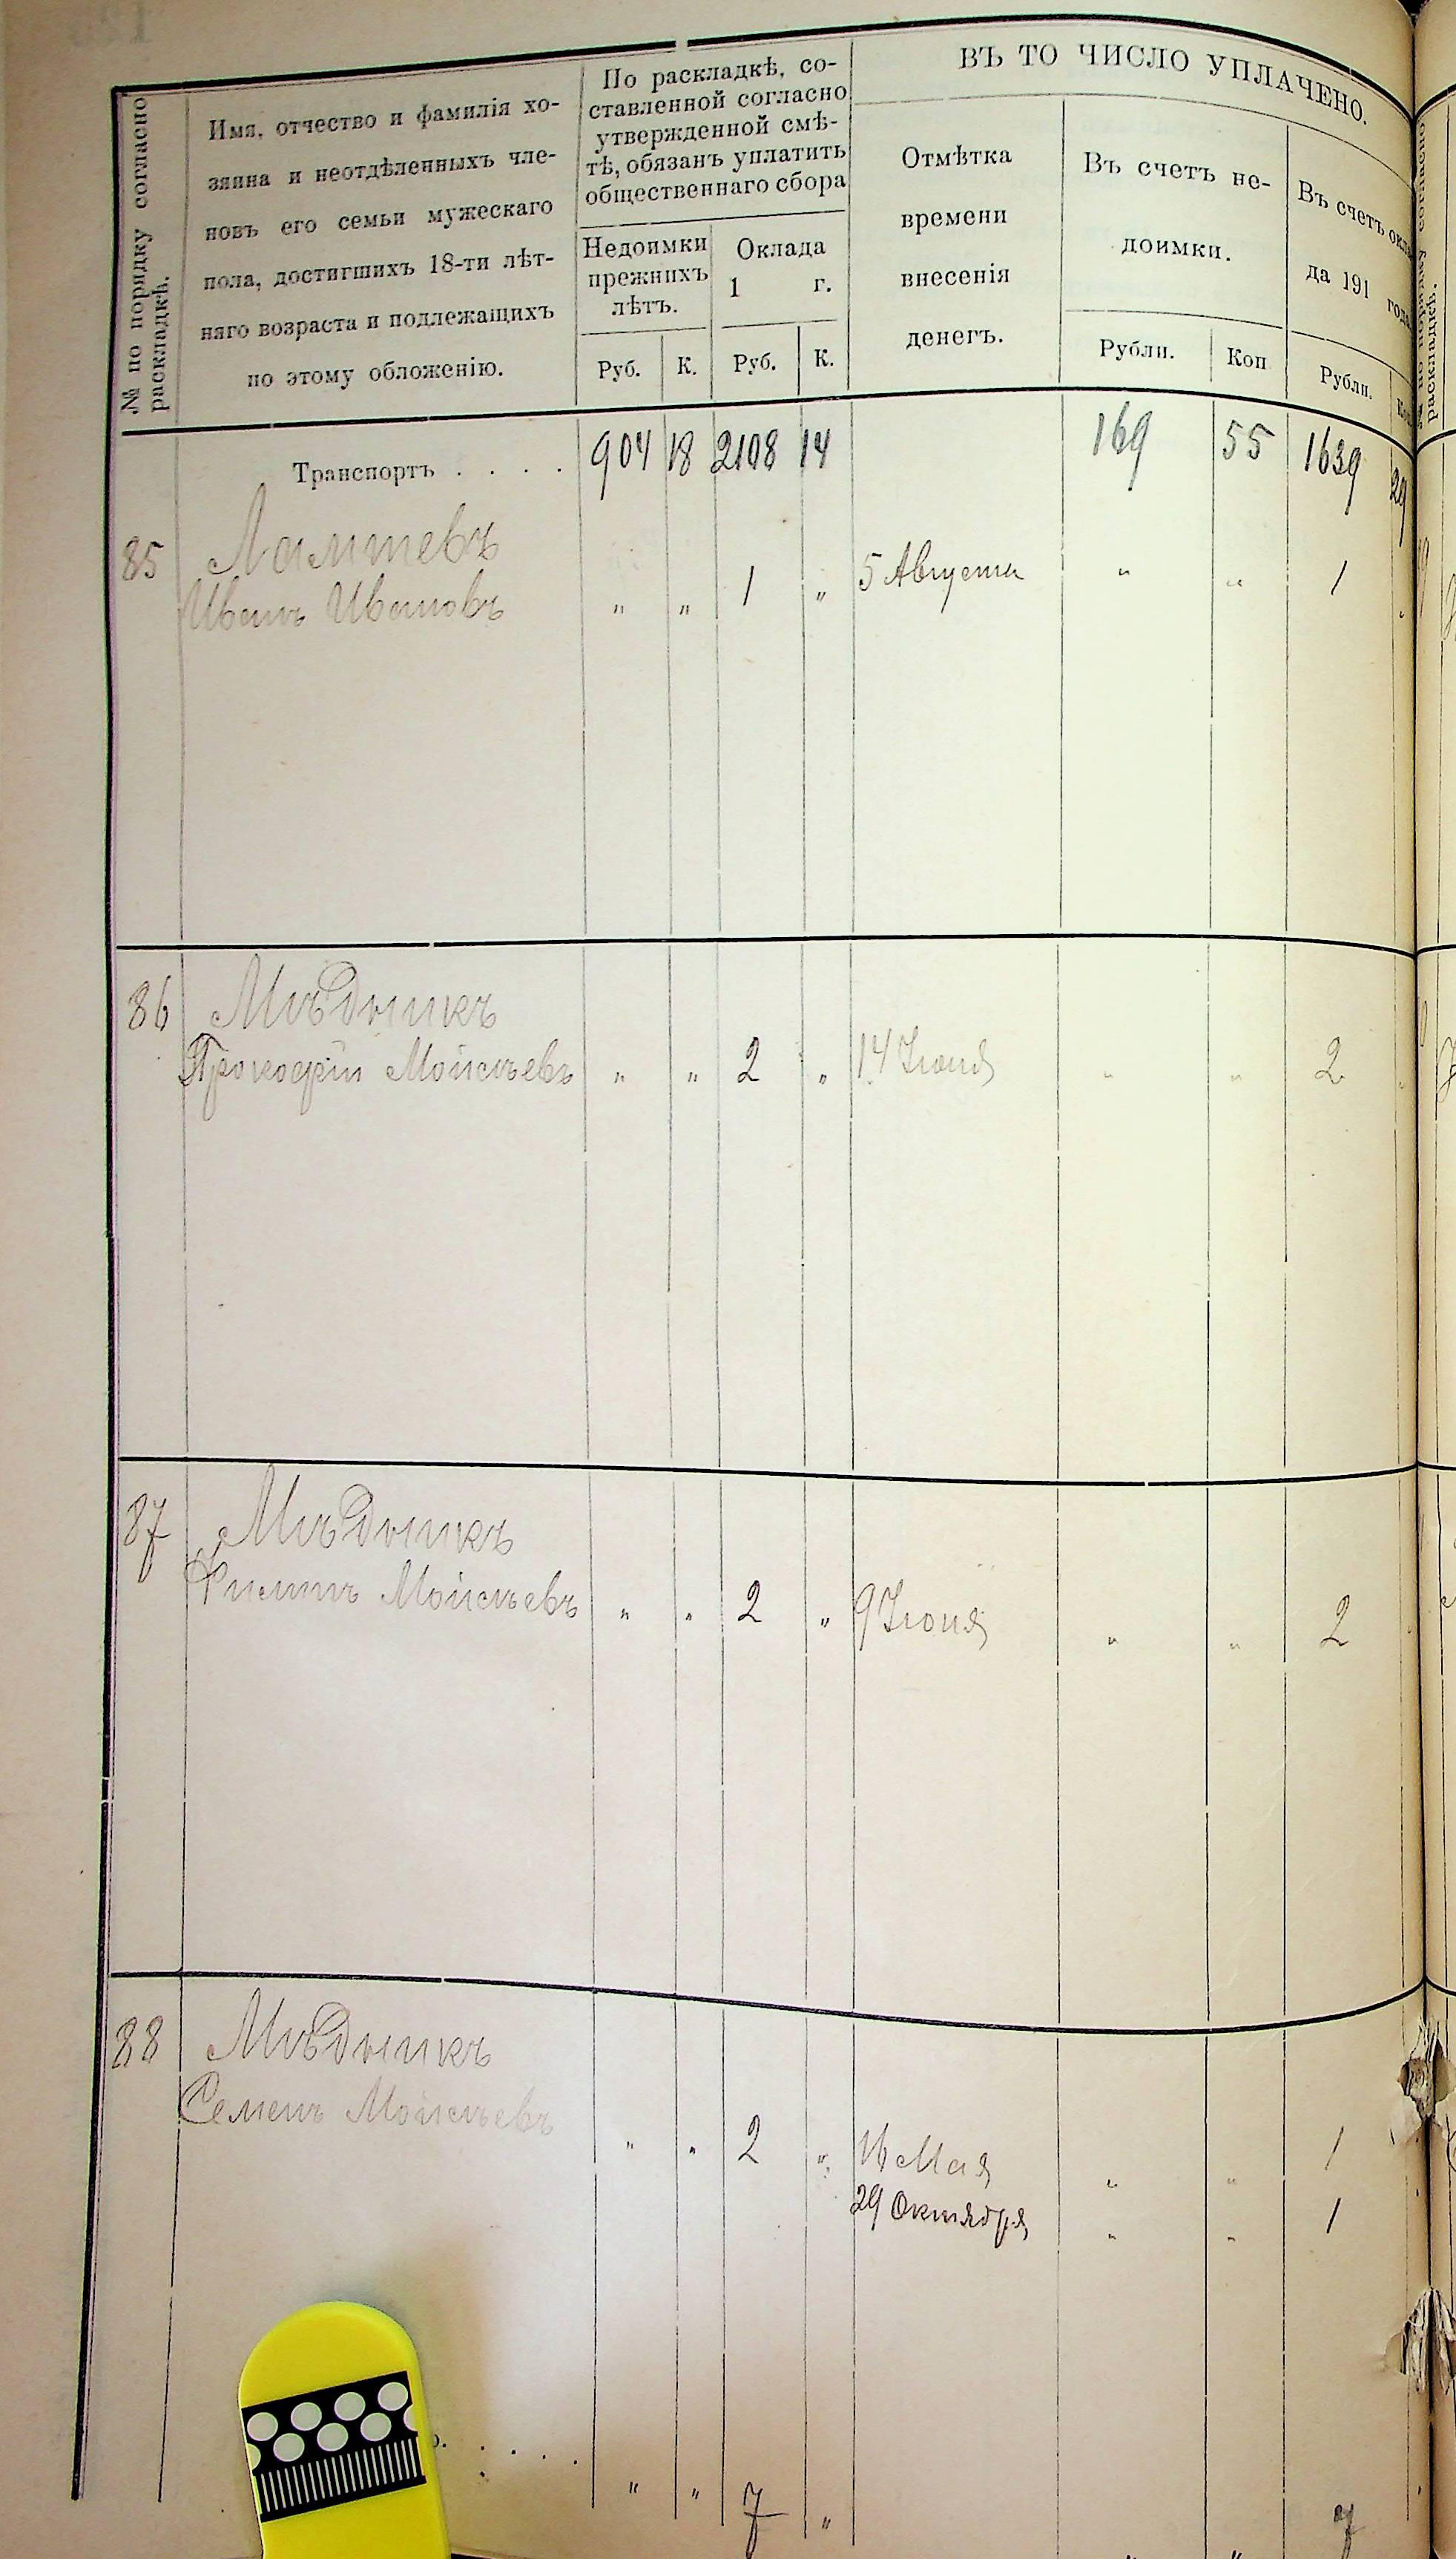 № по порядку согласно
раскладкѣ.
Имя, отчество и фамилія хо-
зяина и неотдѣленныхъ чле-
новъ его семьи мужескаго
пола, достигшихъ 18-ти лѣт-
няго возраста и подлежащихъ
по этому обложенію.
По раскладкѣ, со-
ставленной согласно
утвержденной смѣ-
тѣ, обязанъ уплатить
общественнаго сбора
Недоимки
прежнихъ
лѣтъ.
Оклада
1 г.
Руб. К. Руб. К.
ВЪ ТО ЧИСЛО УПЛАЧЕНО.
Отмѣтка
времени
внесенія
денегъ.
Въ счетъ не-
доимки.
Рубли. Коп
Въ счетъ окла
да 191 года
Рубли. Коп
Транспортъ . . . . 904 18 2108 14 169 55 1639 29
85
Иванъ Ивановъ " " 1 " 5 Августа " " 1 "
86 Мѣдникъ
Прокофій Моисѣевъ " " 2 " 14 Іюня " " 2 "
87 Мѣдникъ
Филиппъ Моисѣевъ " " 2 " 9 Іюня " " 2 "
88 Мѣдникъ
Семенъ Моисѣевъ
" " 2 " 16 Мая " " 1
29 Октября " " 1
" " 7 " " " 7